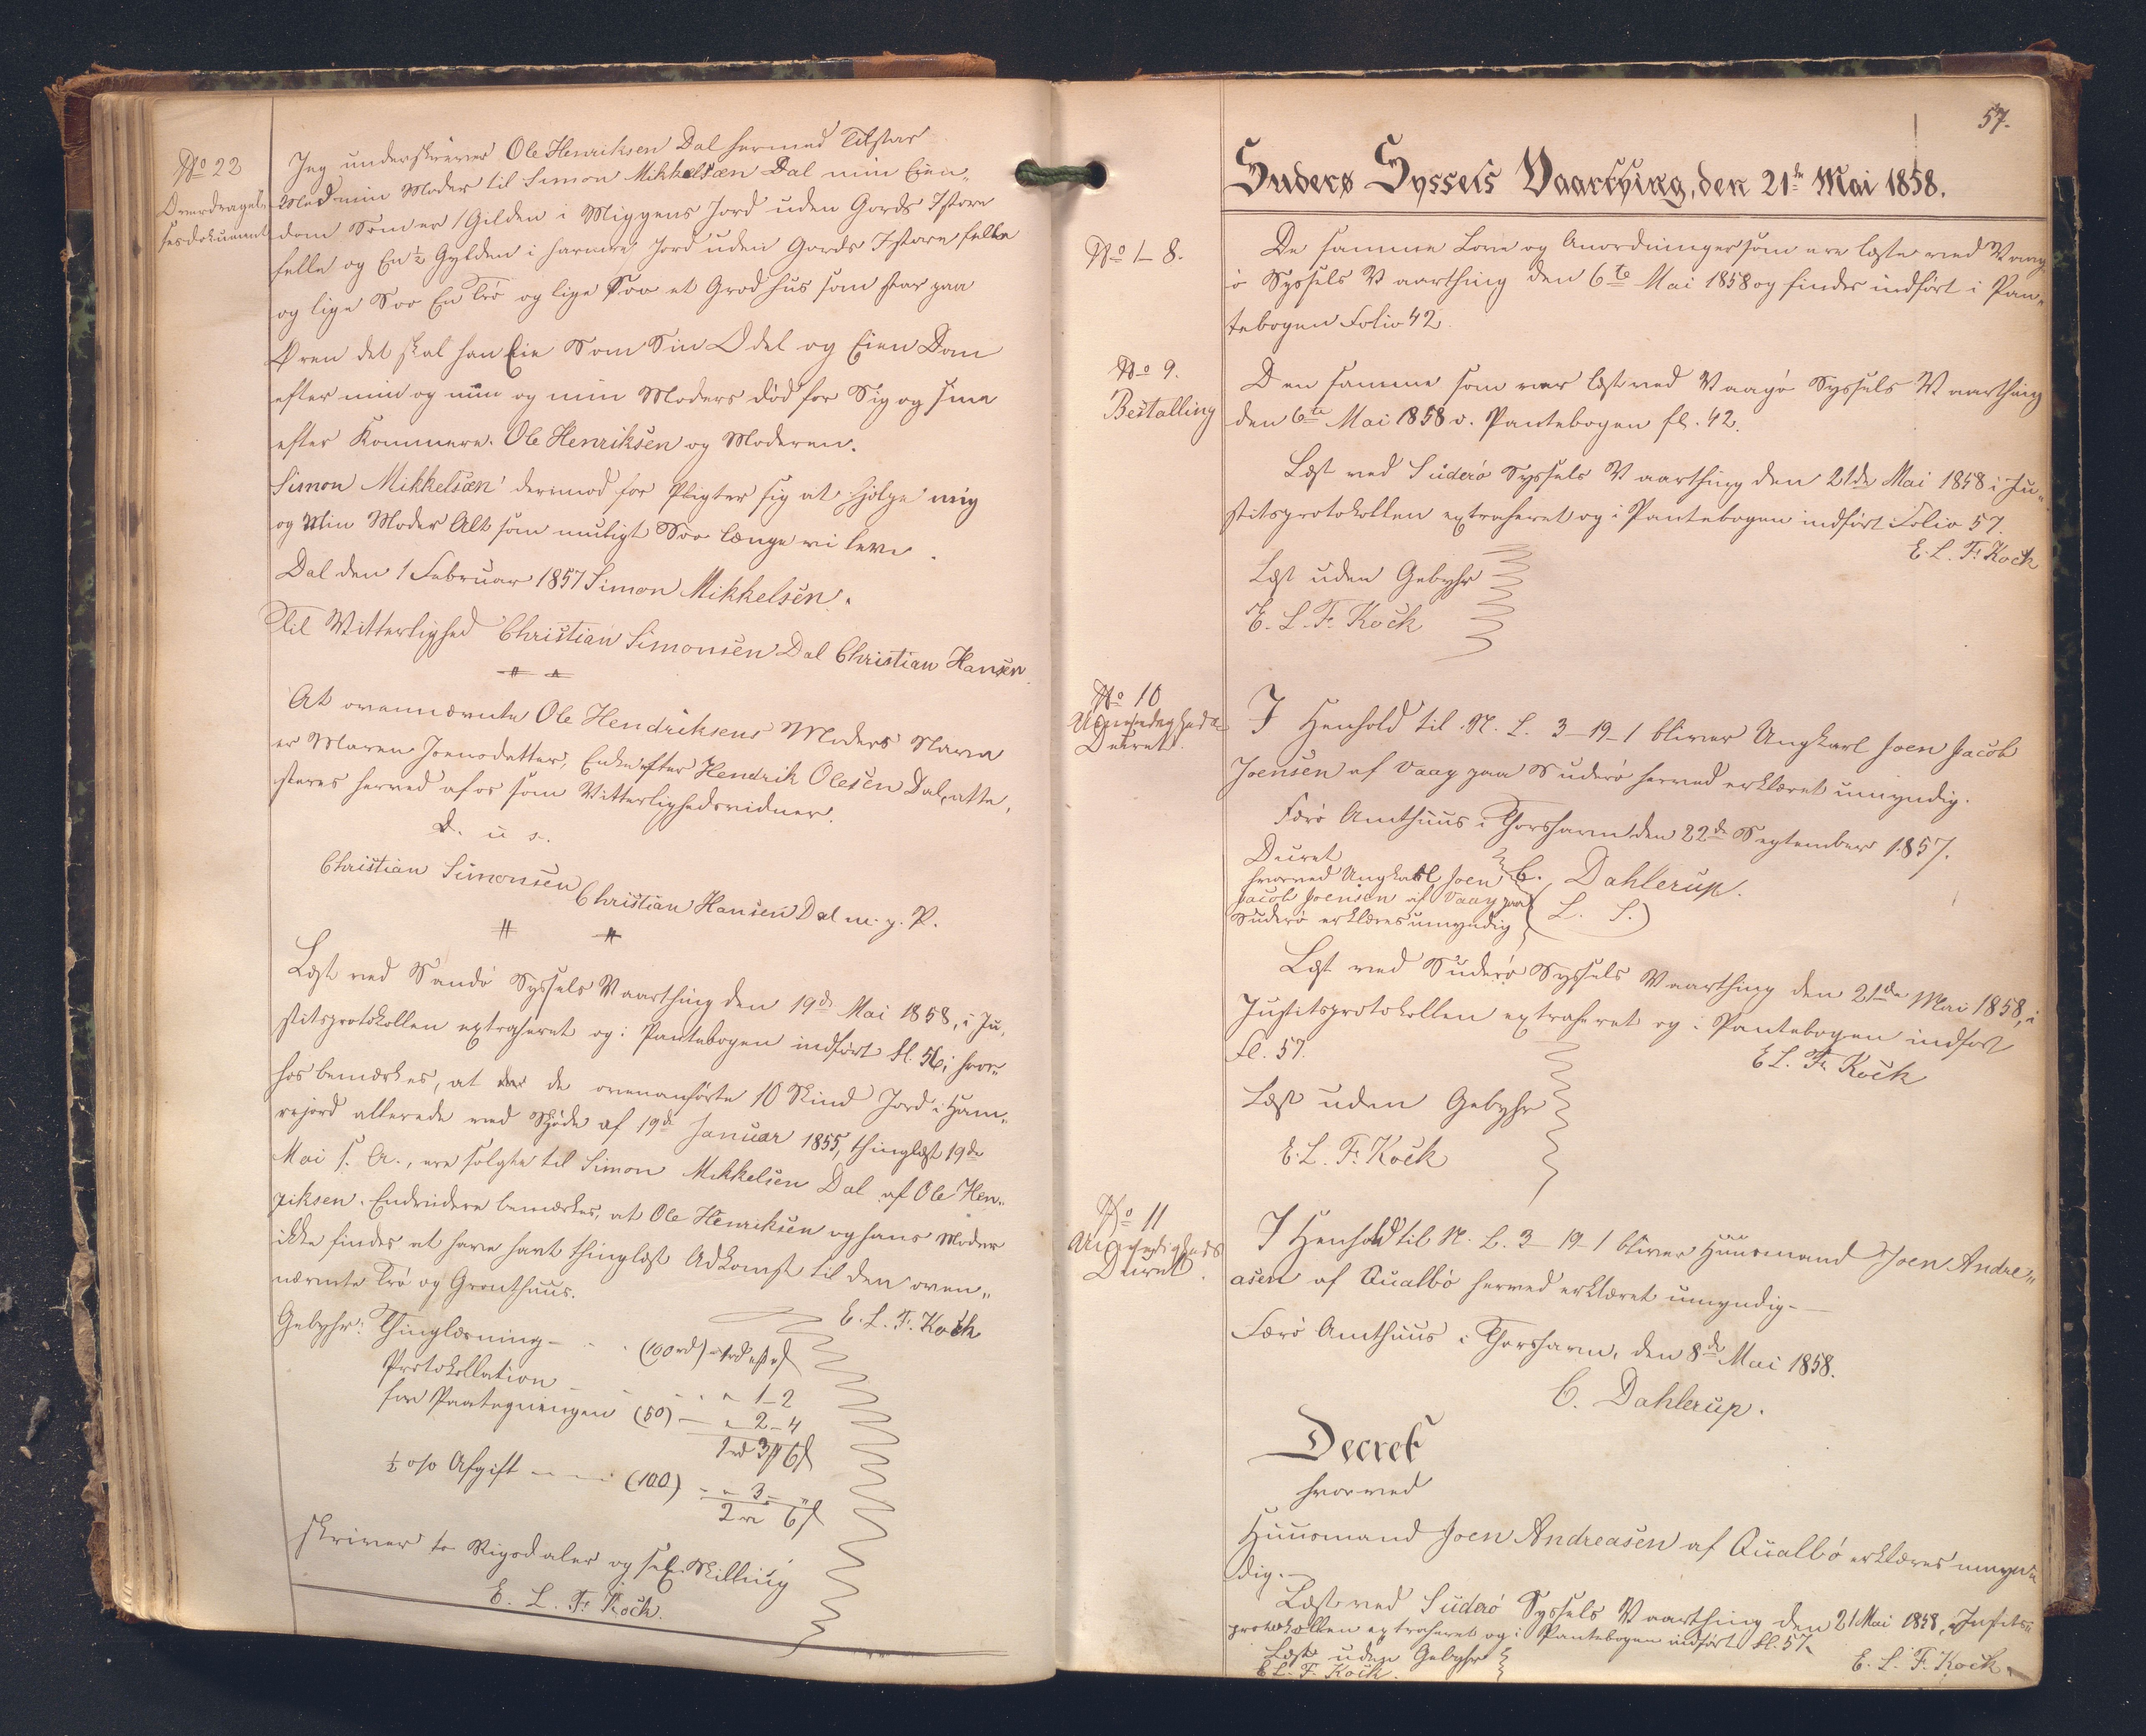 No 22
Overdragel-
sesdokument
Jeg underskrevne Ole Henriksen Dal hermed Tilstar
Med min Moder til Simon Mikkelsæn Dal min Eien„
dom Som er 1 Gilden i Miggens Jord uden Gords I store
felle og En ½ Gylden i harmre Jord uden Gords I store felle
og lige Soo En Trö og lige Soo et Grod hus som star paa
Øren det skal han Eie Som Sin Odel og Eien Dom
efter min og min og min Moders død for Sig og sine
efter Kommere. Ole Henriksen og Moderen.
Simon Mikkelsæn derimod for Pligter sig at hjelpe mig
og Min Moder Alt som muligt Soo længe vi leve.
Dal den 1 Februar 1857 Simon Mikkelsen.
Til Vitterlighed Christian Simonsen Dal Christian Hansen.
At ovennævnte Ole Hendriksens Moders Navn
er Maren Joensdatter, Enke efter Hendrik Olesen Dal, atte„
steres herved af os som Vitterlighedsvidner.
D. u s.
Christian Simonsen
Christian Hansen Dal m. p. P.
Læst ved Sandö Syssels Vaarthing den 19de Mai 1858, i Ju„
stitsprotokollen extraheret og i Pantebogen indført fl. 56; hvor„
hos bemærkes, at de ovenanførte 10 Skind Jord i Ham„
rejord allerede ved Skjöde af 19de Januar 1855, thinglæst 19de
Mai s. A., ere solgte til Simon Mikkelsen Dal af Ole Hen„
riksen. Endvidere bemærkes, at Ole Henriksen og hans Moder
ikke findes at have havt thinglæst Adkomst til den oven„
nævnte Trö og Grodthuus.
E. L. F. Kock
Gebyhr: Thinglæsning - - - (100 rd) - 1rd „ß
Protokollation - - - - „ 1-2
for Paategningen (50) - „ 2-4
1rd 3ß 6ß
½ o/o Afgift - - - (100) - - „ 3 - „
2rd 6ß
skriver to Rigsdaler og sex Skilling
E. L. F. Kock.
57.
Suderø Syssels Vaarthing, den 21de Mai 1858.
No 1-8.
De samme Love og Anordninger som ere læste ved Vaag
ö Syssels Vaarthing den 6te Mai 1858 og findes indført i Pan„
tebogen Folio 42.
No 9.
Bestalling
Den samme som var læst ved Vaagö Syssels Vaarthing
den 6te Mai 1858 v. Pantebogen fl. 42.
Læst ved Suderö Syssels Vaarthing den 21de Mai 1858 i Ju„
stitsprotokollen extraheret og i Pantebogen indført Folio 57.
E. L. F. Kock
Læst uden Gebyhr
E. L. F. Kock
No 10
Umyndigheds
Decret.
I Henhold til N. L. 3-19-1 bliver Ungkarl Joen Jacob
Joensen af Vaag paa Suderö herved erklæret umyndig.
Færö Amthuus i Thorshavn den 22de September 1857.
C. Dahlerup.
(L. S.)
Decret
hvorved Ungkarl Joen
Jacob Joensen af Vaag paa
Suderö erklæres umyndig
Læst ved Suderö Syssels Vaarthing den 21de Mai 1858, i
Justitsprotokollen extraheret og i Pantebogen indført
fl. 57.
E. L. F. Kock
Læst uden Gebyhr
E. L. F. Kock
No 11
Umyndigheds
Decret.
I Henhold til N. L. 3-19-1 bliver Huusmand Joen Andre„
asen af Qualbö herved erklæret umyndig.
Færö Amthuus i Thorshavn, den 8de Mai 1858.
C. Dahlerup.
Decret
hvorved
Huusmand Joen Andreasen af Qualbö erklæres umyn„
dig.
Læst ved Suderö Syssels Vaarthing den 21 Mai 1858, i Justits„
protokollen extraheret og i Pantebogen indført fl. 57.
E. L. F. Kock.
Læst uden Gebyhr
E. L. F. Kock.